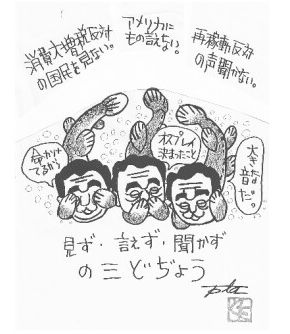 消費大増税反対
の国民を見ない。
アメリカに
もの言えない。
再稼動反対
の声聞かない。
命かけ
てるから
オスプレイ
決まったこと
大きな
音だ。
見ず・言えず・聞かず
の三どぢょう